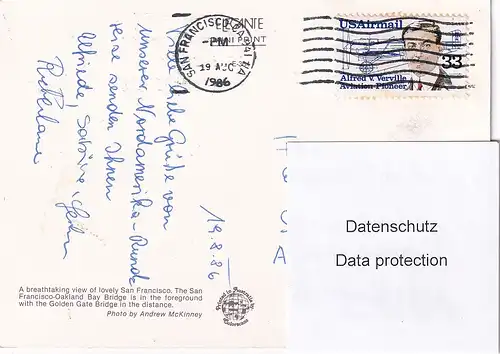 SAN FRANCISCO
CA
PM
19 AUG
1986
USAirmail
33
Alfred v. Verville
Aviation Pioneer
Viele liebe Grüße von
unserer Nordamerika-Rund
reise senden Ihnen
Elfriede, Sabine,
19.8.86
Datenschutz
Data protection
A breathtaking view of lovely San Francisco. The San
Francisco-Oakland Bay Bridge is in the foreground
with the Golden Gate Bridge in the distance.
Photo by Andrew McKinney
Printed in Australia by